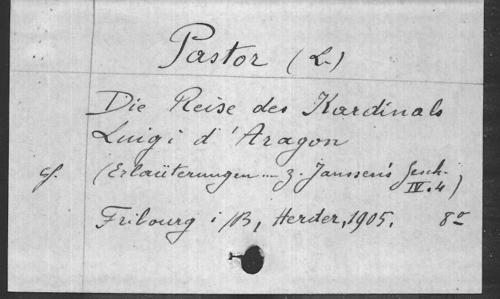 Pastor (L.)
Die Reise des Kardinals
Luigi d'Aragon
cf. (Erlaüterungen ... z. Janssen's Gesch. IV. 4)
Fribourg i/B, Herder, 1905. 8º